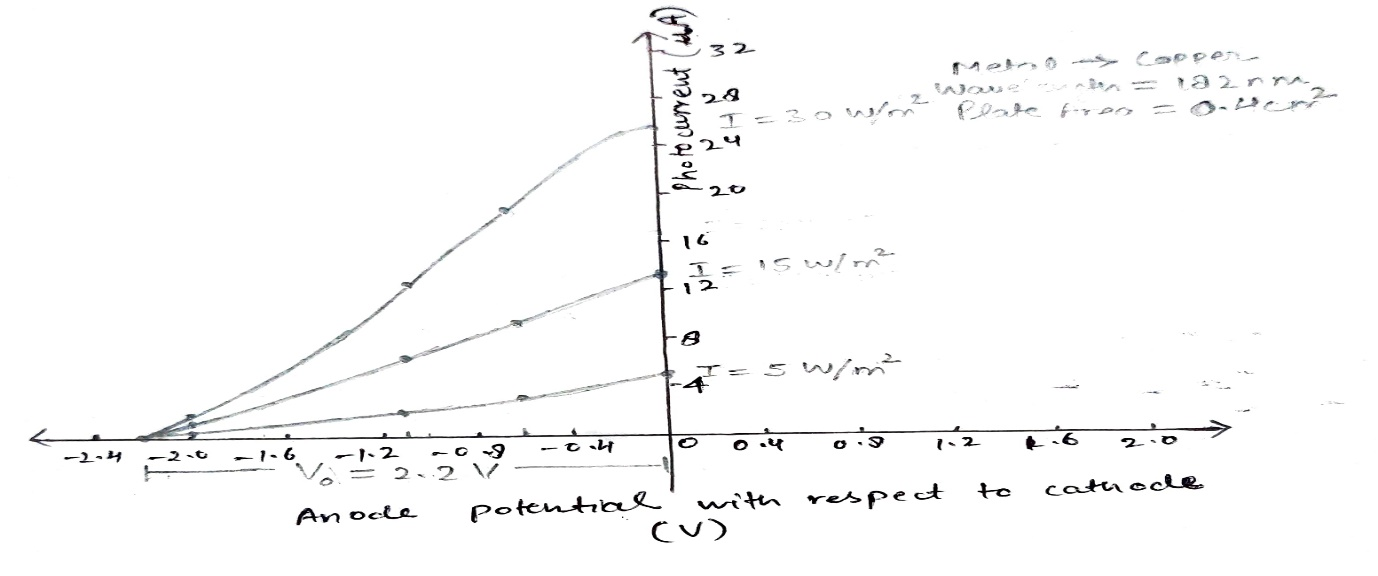 Photocurrent (μA)
32
28
24
20
16
12
8
4
Metal → Copper
= 182 nm
Plate Area = 0.4 cm²
I = 30 W/m²
I = 15 W/m²
I = 5 W/m²
-2.4 -2.0 -1.6 -1.2 -0.8 -0.4 0 0.4 0.8 1.2 1.6 2.0
V₀ = 2.2 V
Anode potential with respect to cathode
(V)